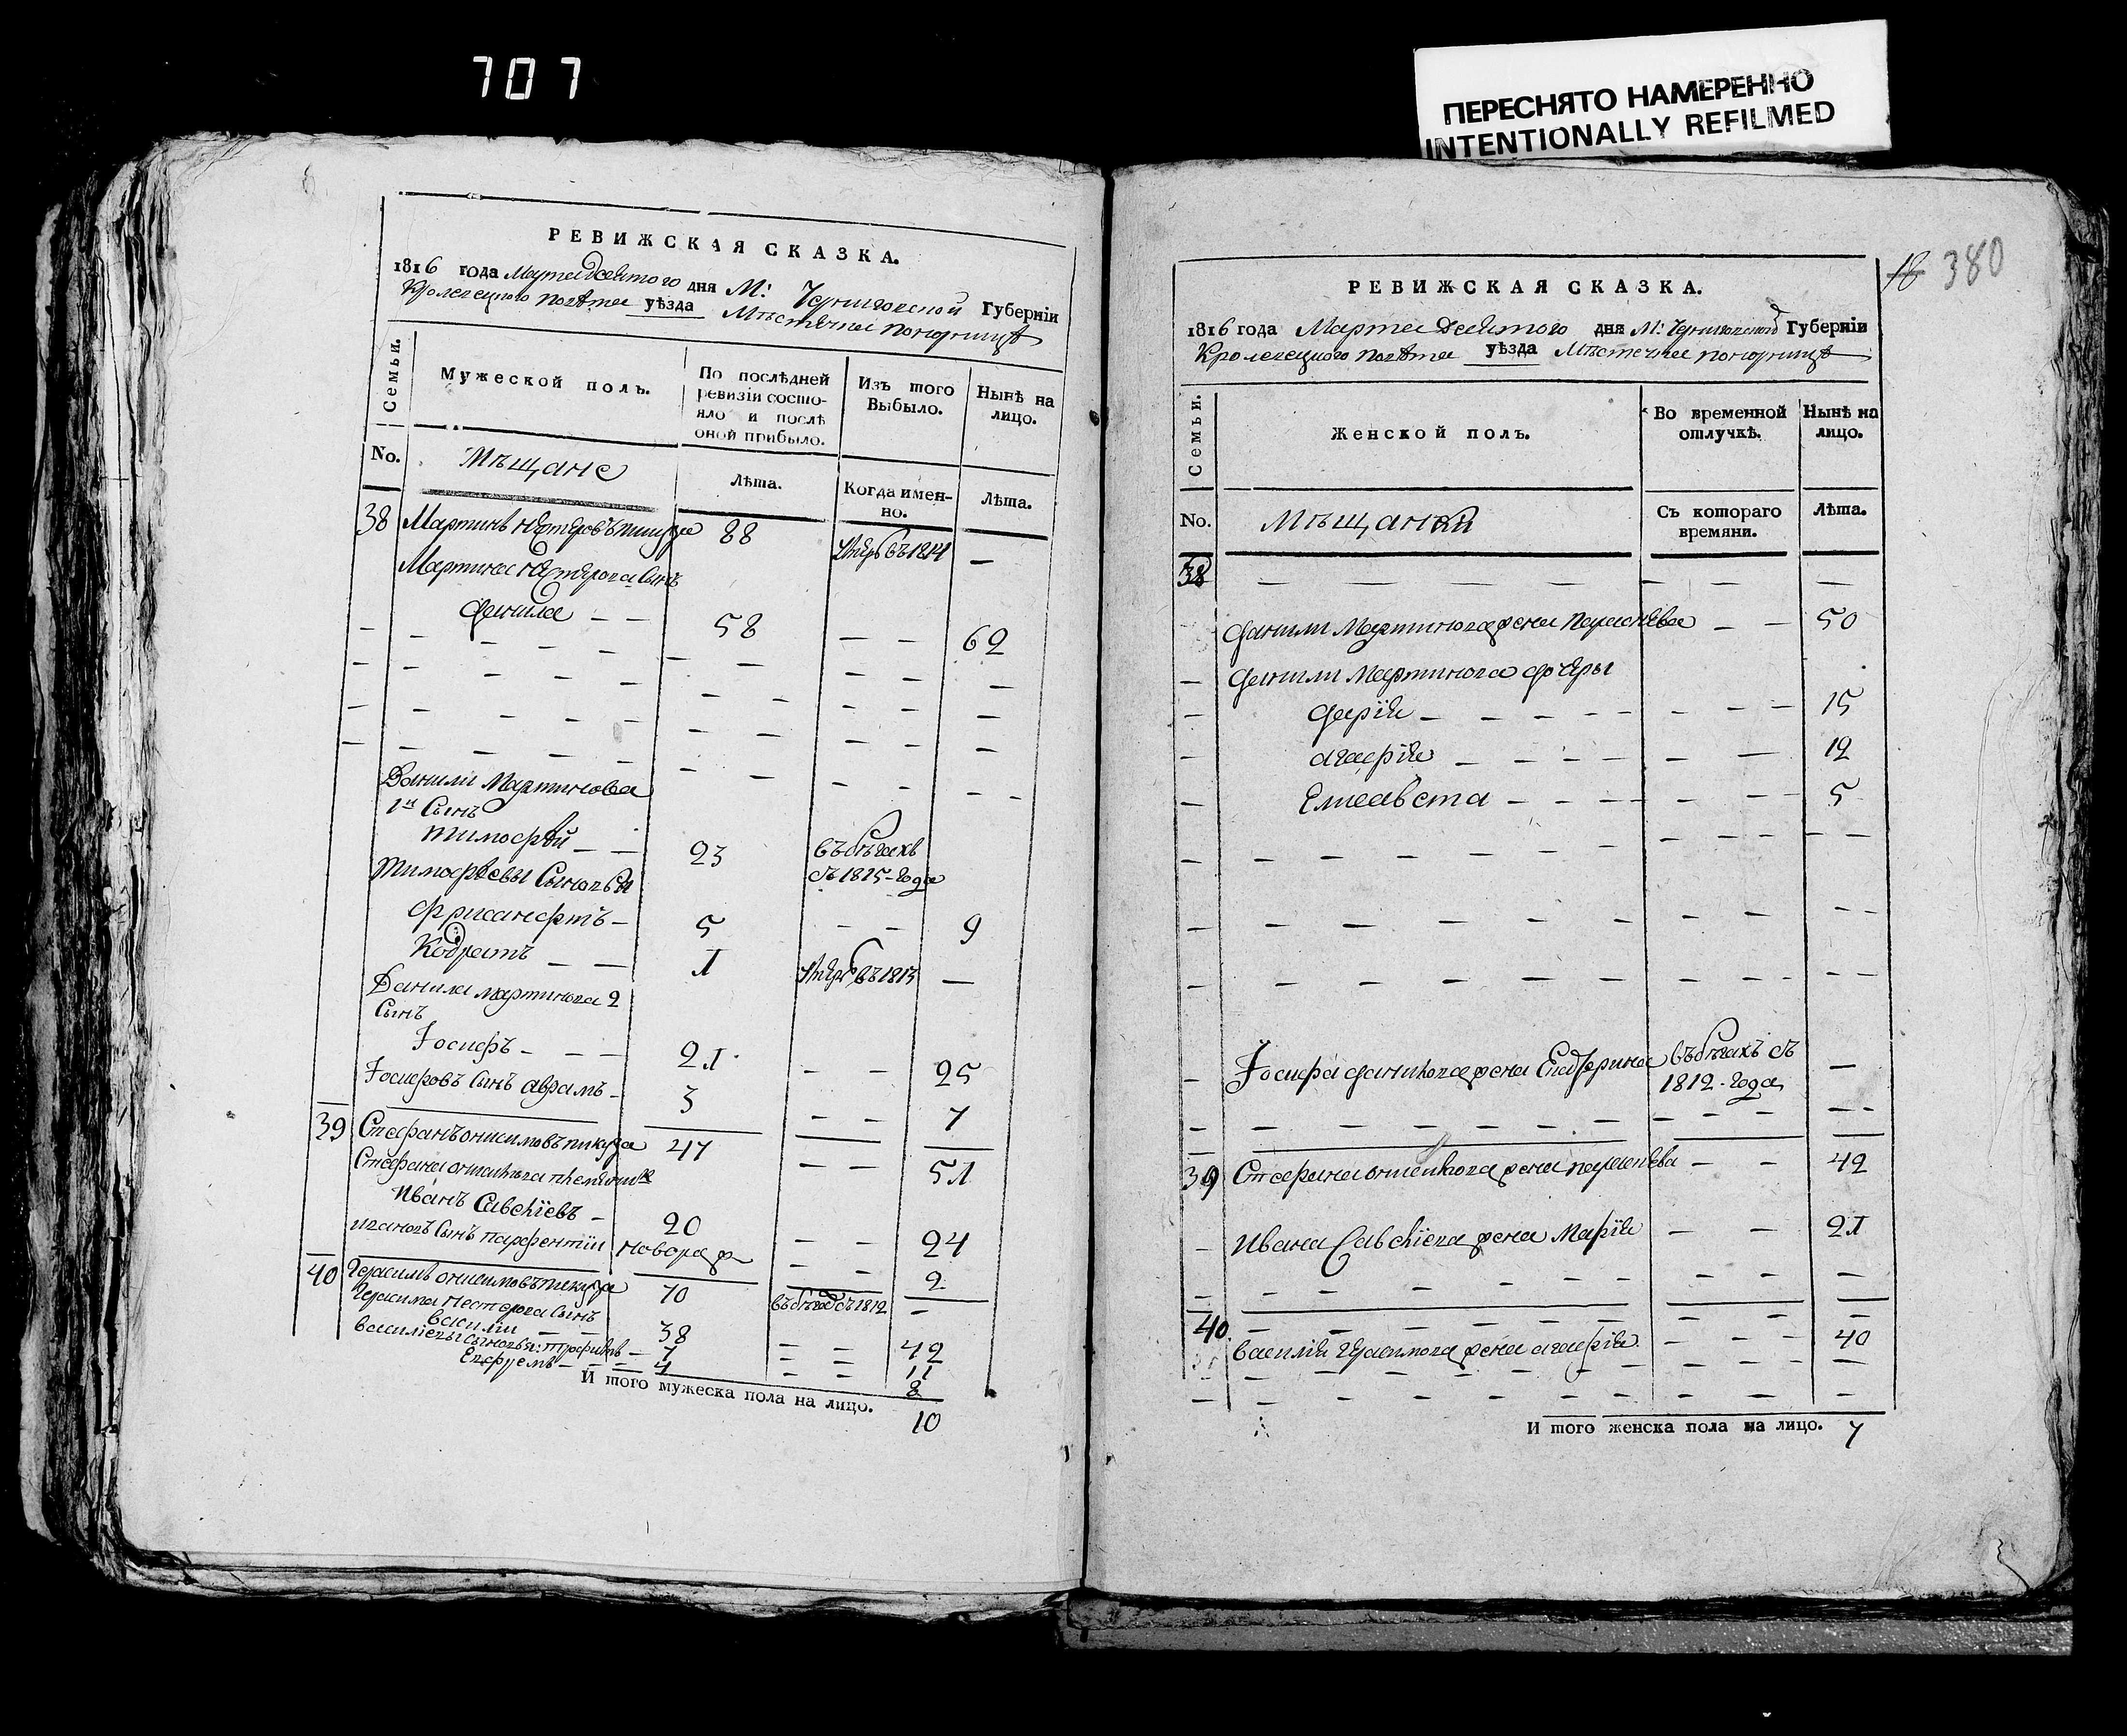 707
ПЕРЕСНЯТО НАМЕРЕННО
INTENTIONALLY REFILMED
РЕВИЖСКАЯ СКАЗКА.
1816 года Марта десятого дня М: Черниговской Губернїи
Кролевецкого уѣзда Мѣстечка
Семьи.
Мужеской полъ.
По послѣдней ревизїи состояло и послѣ оной прибыло.
Изъ того Выбыло.
Нынѣ на лицо.
No.
Мѣщане
Лѣта.
Когда именно.
Лѣта.
38 Мартинъ Нестеровъ 88 въ 1814 —
Мартина Нестерова Сынъ
Данила — — 58 — — 62
Данили Мартинова
1й Сынъ
Тимофѣй — — 23 въ бѣгахъ
съ 1815-года
Тимофѣевы Сыновья
— 5 — — 9
Кодратъ — — 1 въ 1813 —
Данила Мартинова 2
Сынъ
Іосифъ — — — 21 — — 25
Іосифовъ Сынъ Аврамъ — 3 — — 7
39 Стефанъ Онисимовъ 47 — — 51
Стефана
Иванъ Савелїевъ — 20 — — 24
Ивановъ Сынъ Парфентїи — — 2
40 Герасимъ Онисимовъ 70 въ бѣгах съ 1812 —
Герасима Нестерова Сынъ
Василїи — — 38 — — 42
Василїевы Сыновья: Трофимъ — 7 — — 11
Ефремъ — — 4 — — 8
И того мужеска пола на лицо. 10
18 380
РЕВИЖСКАЯ СКАЗКА.
1816 года Марта десятого дня М: Черниговской Губернїи
Кролевецкого уѣзда Мѣстечка
Семьи.
Женской полъ.
Во временной отлучкѣ.
Нынѣ на лицо.
No.
Мѣщанки
Съ котораго времяни.
Лѣта.
38 — — — — — — —
Данили Мартинова жена Парасковѣа — — 50
Данили Мартинова дочеры
Дарїя — — — — — — — 15
Агафїя — — — — — — 12
Елисавета — — — — — — 5
Іосифа Данилова жена Екатерина въ бѣгахъ съ —
1812-года
39 Стефана жена Парасковѣа — — 42
Ивана Савелїева жена Марїя — — 21
40 — — — — — — — —
Василїя Герасимова жена Агафїя — — 40
И того женска пола на лицо. 7